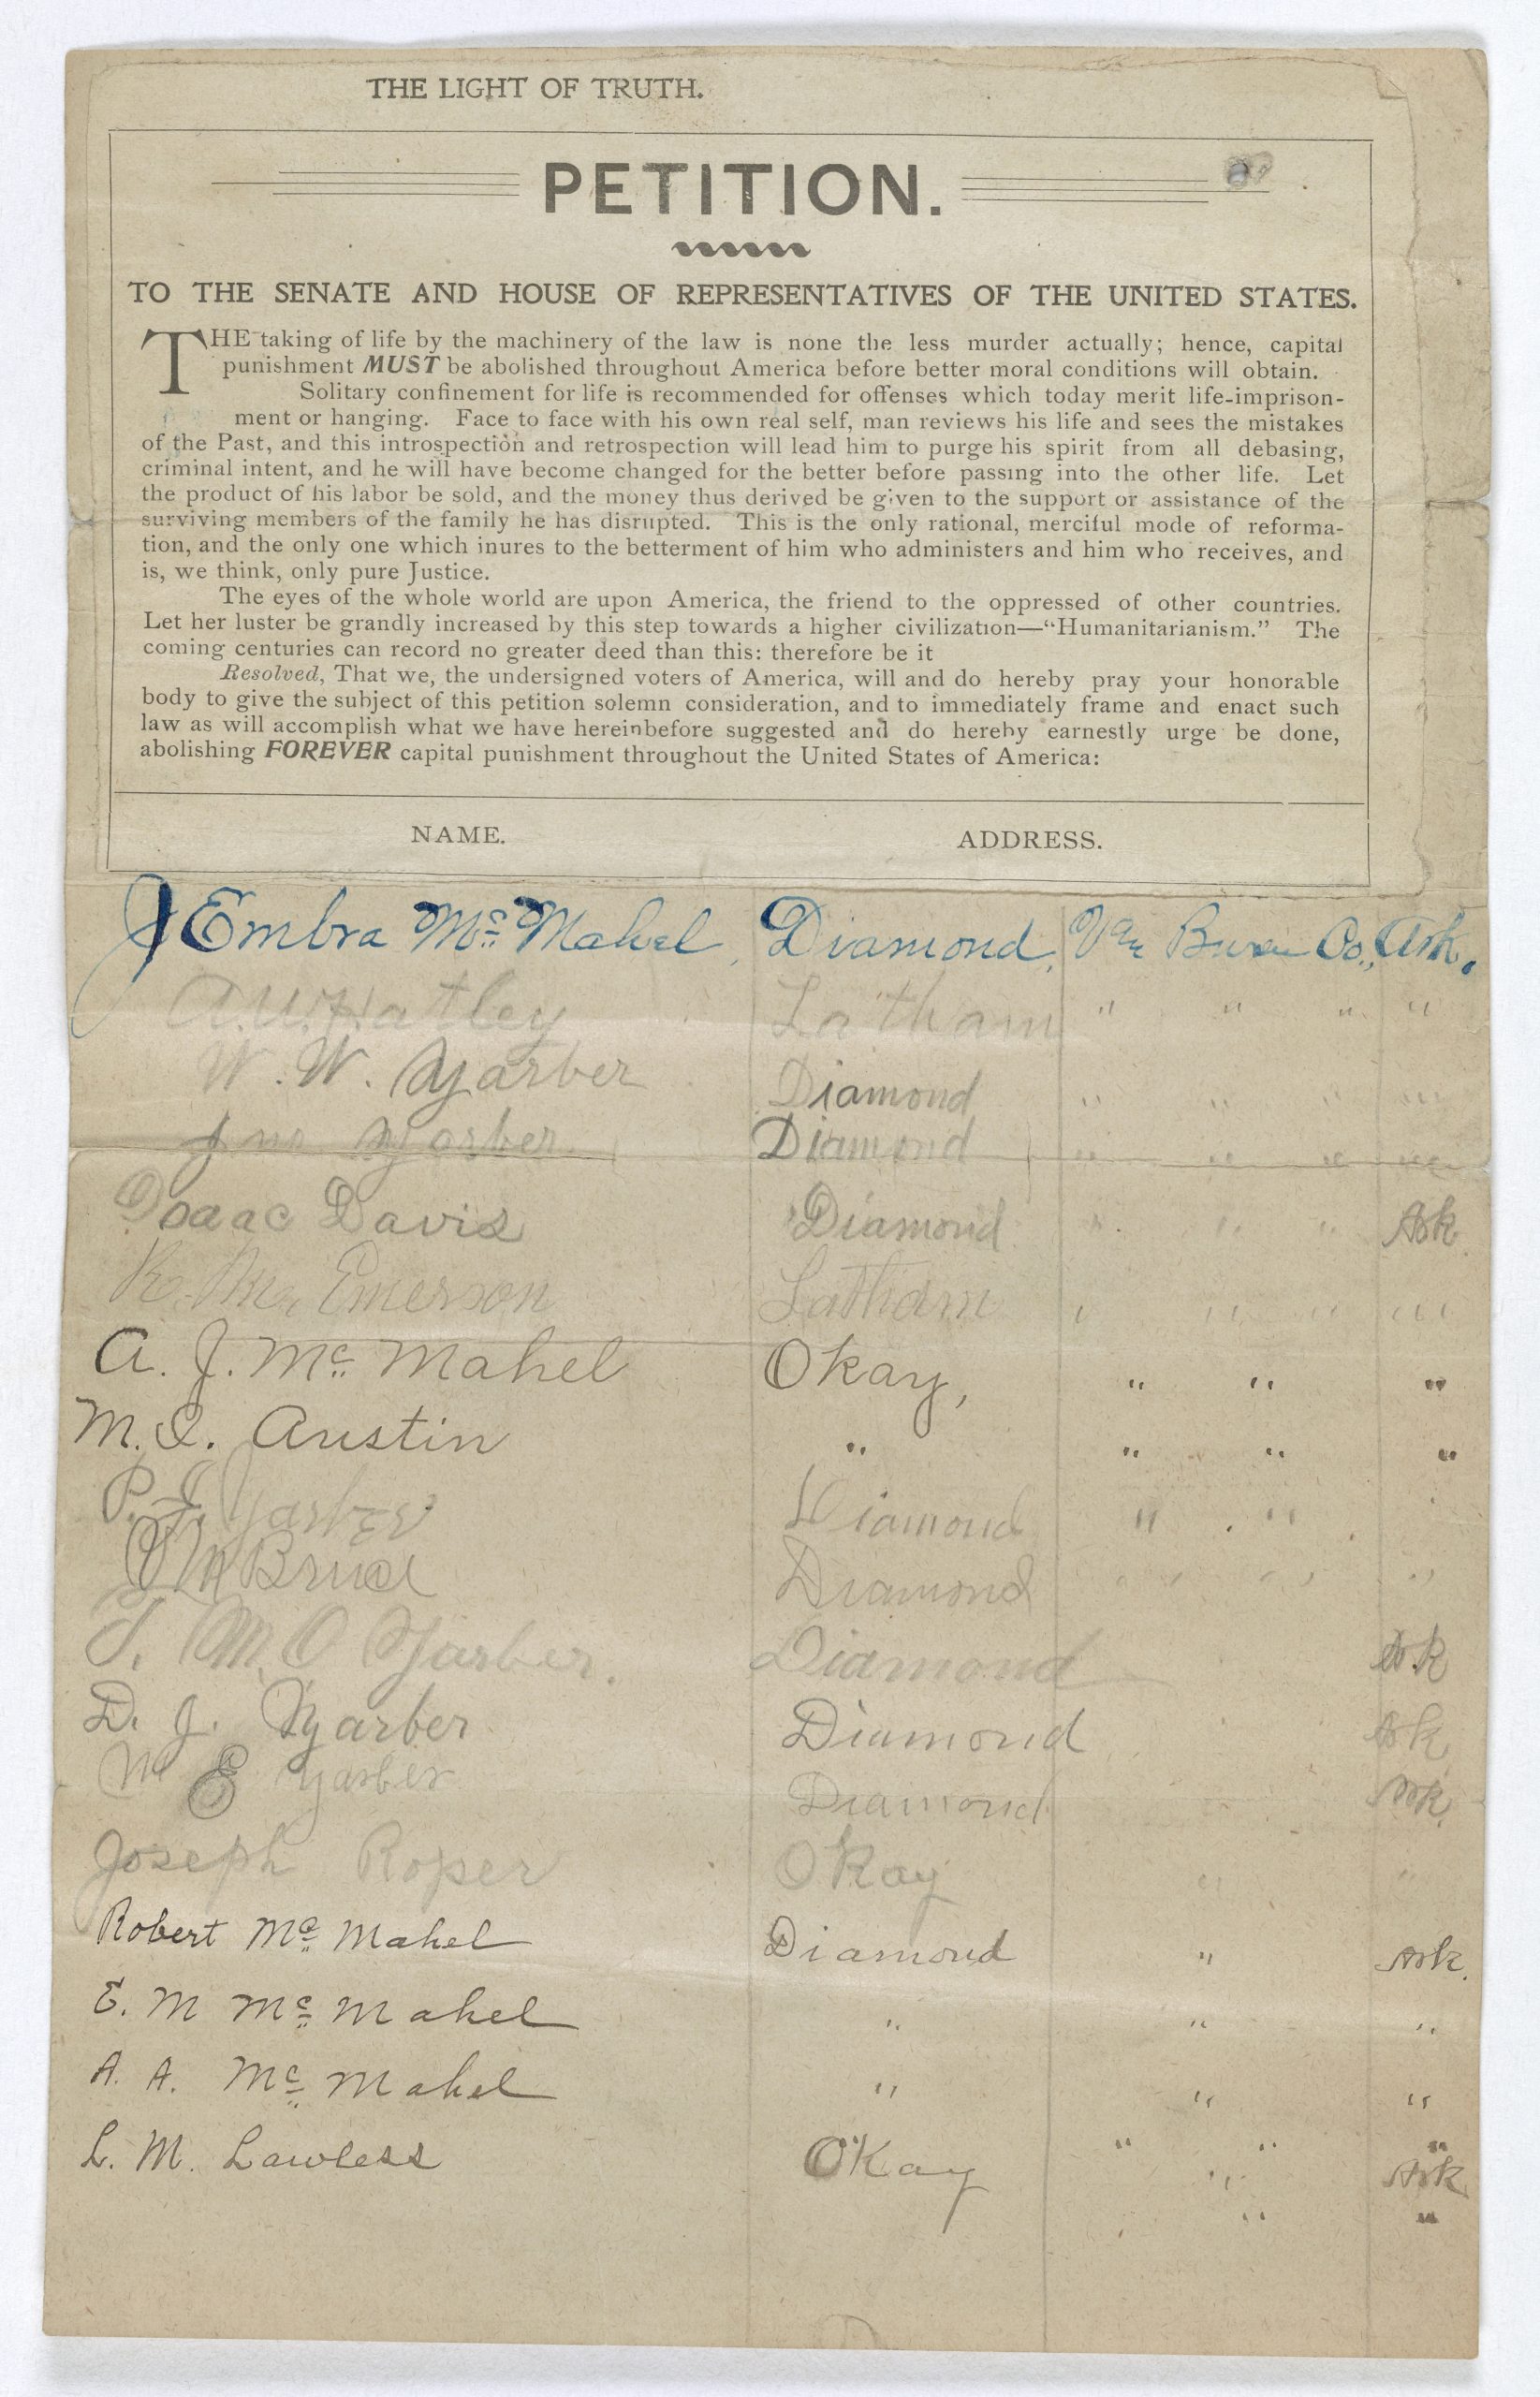 THE LIGHT OF TRUTH.
PETITION.
TO THE SENATE AND HOUSE OF REPRESENTATIVES OF THE UNITED STATES.
THE taking of life by the machinery of the law is none the less murder actually; hence, capital
punishment MUST be abolished throughout America before better moral conditions will obtain.
Solitary confinement for life is recommended for offenses which today merit life-imprison-
ment or hanging. Face to face with his own real self, man reviews his life and sees the mistakes
of the Past, and this introspection and retrospection will lead him to purge his spirit from all debasing,
criminal intent, and he will have become changed for the better before passing into the other life. Let
the product of his labor be sold, and the money thus derived be given to the support or assistance of the
surviving members of the family he has disrupted. This is the only rational, merciful mode of reforma-
tion, and the only one which inures to the betterment of him who administers and him who receives, and
is, we think, only pure Justice.
The eyes of the whole world are upon America, the friend to the oppressed of other countries.
Let her luster be grandly increased by this step towards a higher civilization—“Humanitarianism.” The
coming centuries can record no greater deed than this: therefore be it
Resolved, That we, the undersigned voters of America, will and do hereby pray your honorable
body to give the subject of this petition solemn consideration, and to immediately frame and enact such
law as will accomplish what we have hereinbefore suggested and do hereby earnestly urge be done,
abolishing FOREVER capital punishment throughout the United States of America:
NAME. ADDRESS.
J Embra Mc Mahel, Diamond, Van Buren Co., Ark.
A.W. Hatley Latham " " " "
W. W. Yarber Diamond " " " "
Jno Yarber Diamond " " " "
Isaac Davis Diamond " " " Ark
Emerson Latham " " " "
A. J. Mc Mahel Okay, " " "
M. I. Austin " " " "
P. J. Yarber Diamond " "
M Bruce Diamond " " "
T. M. O Yarber. Diamond Ark
D. J. Yarber Diamond Ark
M E Yarber Diamond Ark.
Joseph Roper Okay "
Robert Mc Mahel Diamond " Ark.
E. M Mc Mahel " " "
A. A. Mc Mahel " " "
L. M. Lawless Okay " " "
" Ark
" "